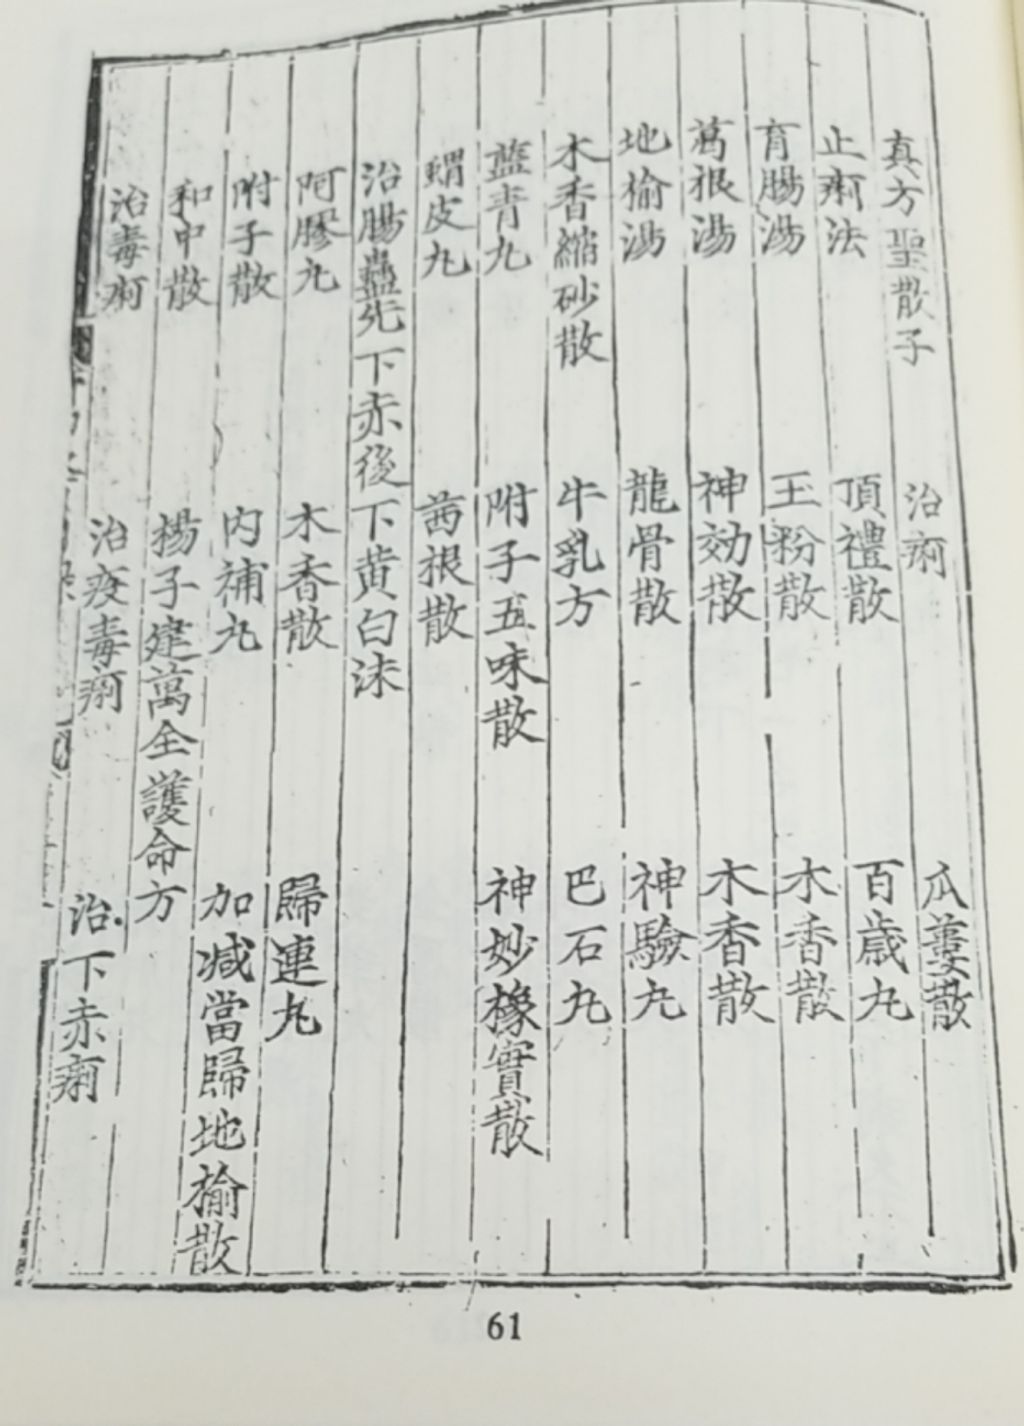 真方聖散子 治痢 瓜蔞散
止痢法 頂禮散 百歲丸
育腸湯 王粉散 木香散
葛根湯 神効散 木香散
地榆湯 龍骨散 神驗丸
木香縮砂散 牛乳方 巴石丸
藍青丸 附子五味散 神妙橡實散
蝟皮丸 茜根散
治腸蠱先下赤後下黄白沫
阿膠丸 木香散 歸連丸
附子散 内補丸 加减當歸地榆散
和中散 楊子建萬全護命方
治毒痢 治疫毒痢 治下赤痢
61